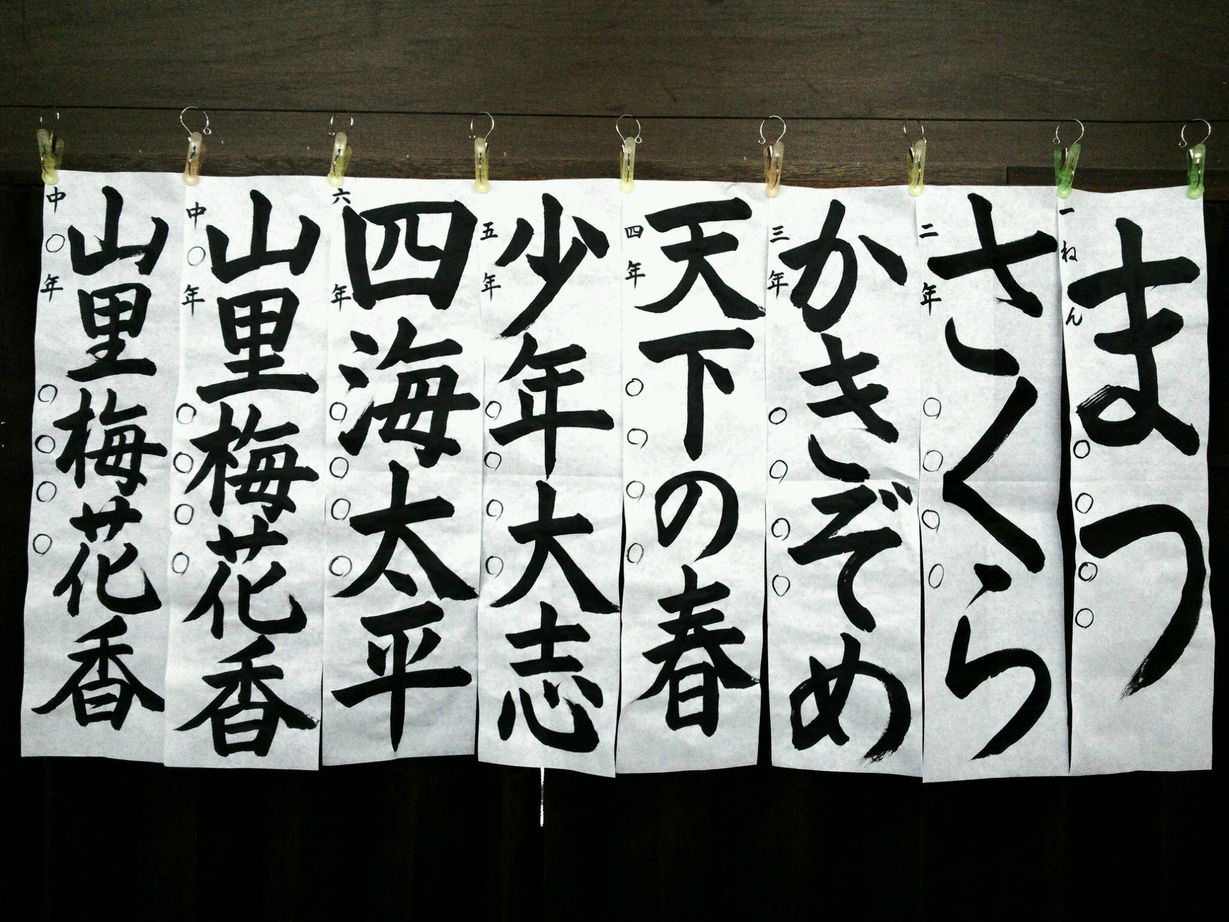 まつ
一ねん 〇〇〇〇
さくら
二年 〇〇〇〇
かきぞめ
三年 〇〇〇〇
天下の春
四年 〇〇〇〇
少年大志
五年 〇〇〇〇
四海太平
六年 〇〇〇〇
山里梅花香
中〇年 〇〇〇〇
山里梅花香
中〇年 〇〇〇〇